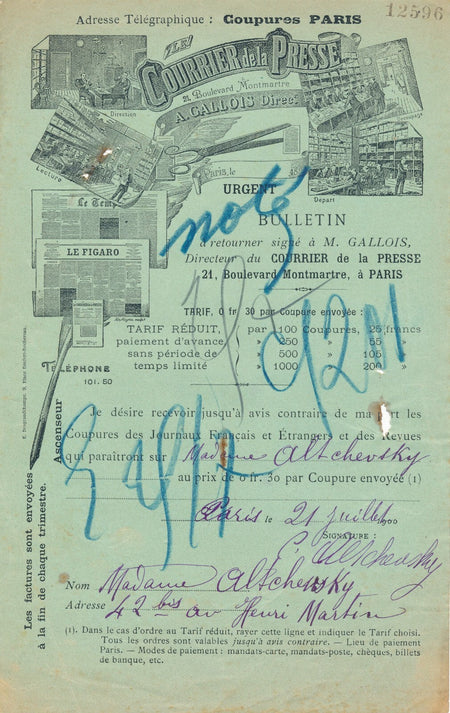 Adresse Télégraphique : Coupures PARIS
12596
LE
COURRIER de la PRESSE
21, Boulevard Montmartre
A. GALLOIS Direct.
Direction
Lecture
Départ
Paris, le
URGENT
noté
BULLETIN
à retourner signé à M. GALLOIS,
Directeur du COURRIER de la PRESSE
21, Boulevard Montmartre, à PARIS
Le Temps
LE FIGARO
TARIF, 0 fr. 30 par Coupure envoyée :
TARIF RÉDUIT, par 100 Coupures, 25 francs
paiement d'avance, » 250 » 55 »
sans période de » 500 » 105 »
temps limité » 1000 » 200 »
TÉLÉPHONE
101.50
Ascenseur
Les factures sont envoyées
à la fin de chaque trimestre.
Je désire recevoir jusqu'à avis contraire de ma part les
Coupures des Journaux Français et Étrangers et des Revues
qui paraîtront sur Madame Altchevsky
au prix de 0 fr. 30 par Coupure envoyée (1)
Paris le 21 juillet 1900
SIGNATURE :
E. Altchevsky
Nom Madame Altchevsky
Adresse 42 bis av Henri Martin
(1). Dans le cas d'ordre au Tarif réduit, rayer cette ligne et indiquer le Tarif choisi.
Tous les ordres sont valables jusqu'à avis contraire. – Lieu de paiement
Paris. – Modes de paiement : mandats-carte, mandats-poste, chèques, billets
de banque, etc.